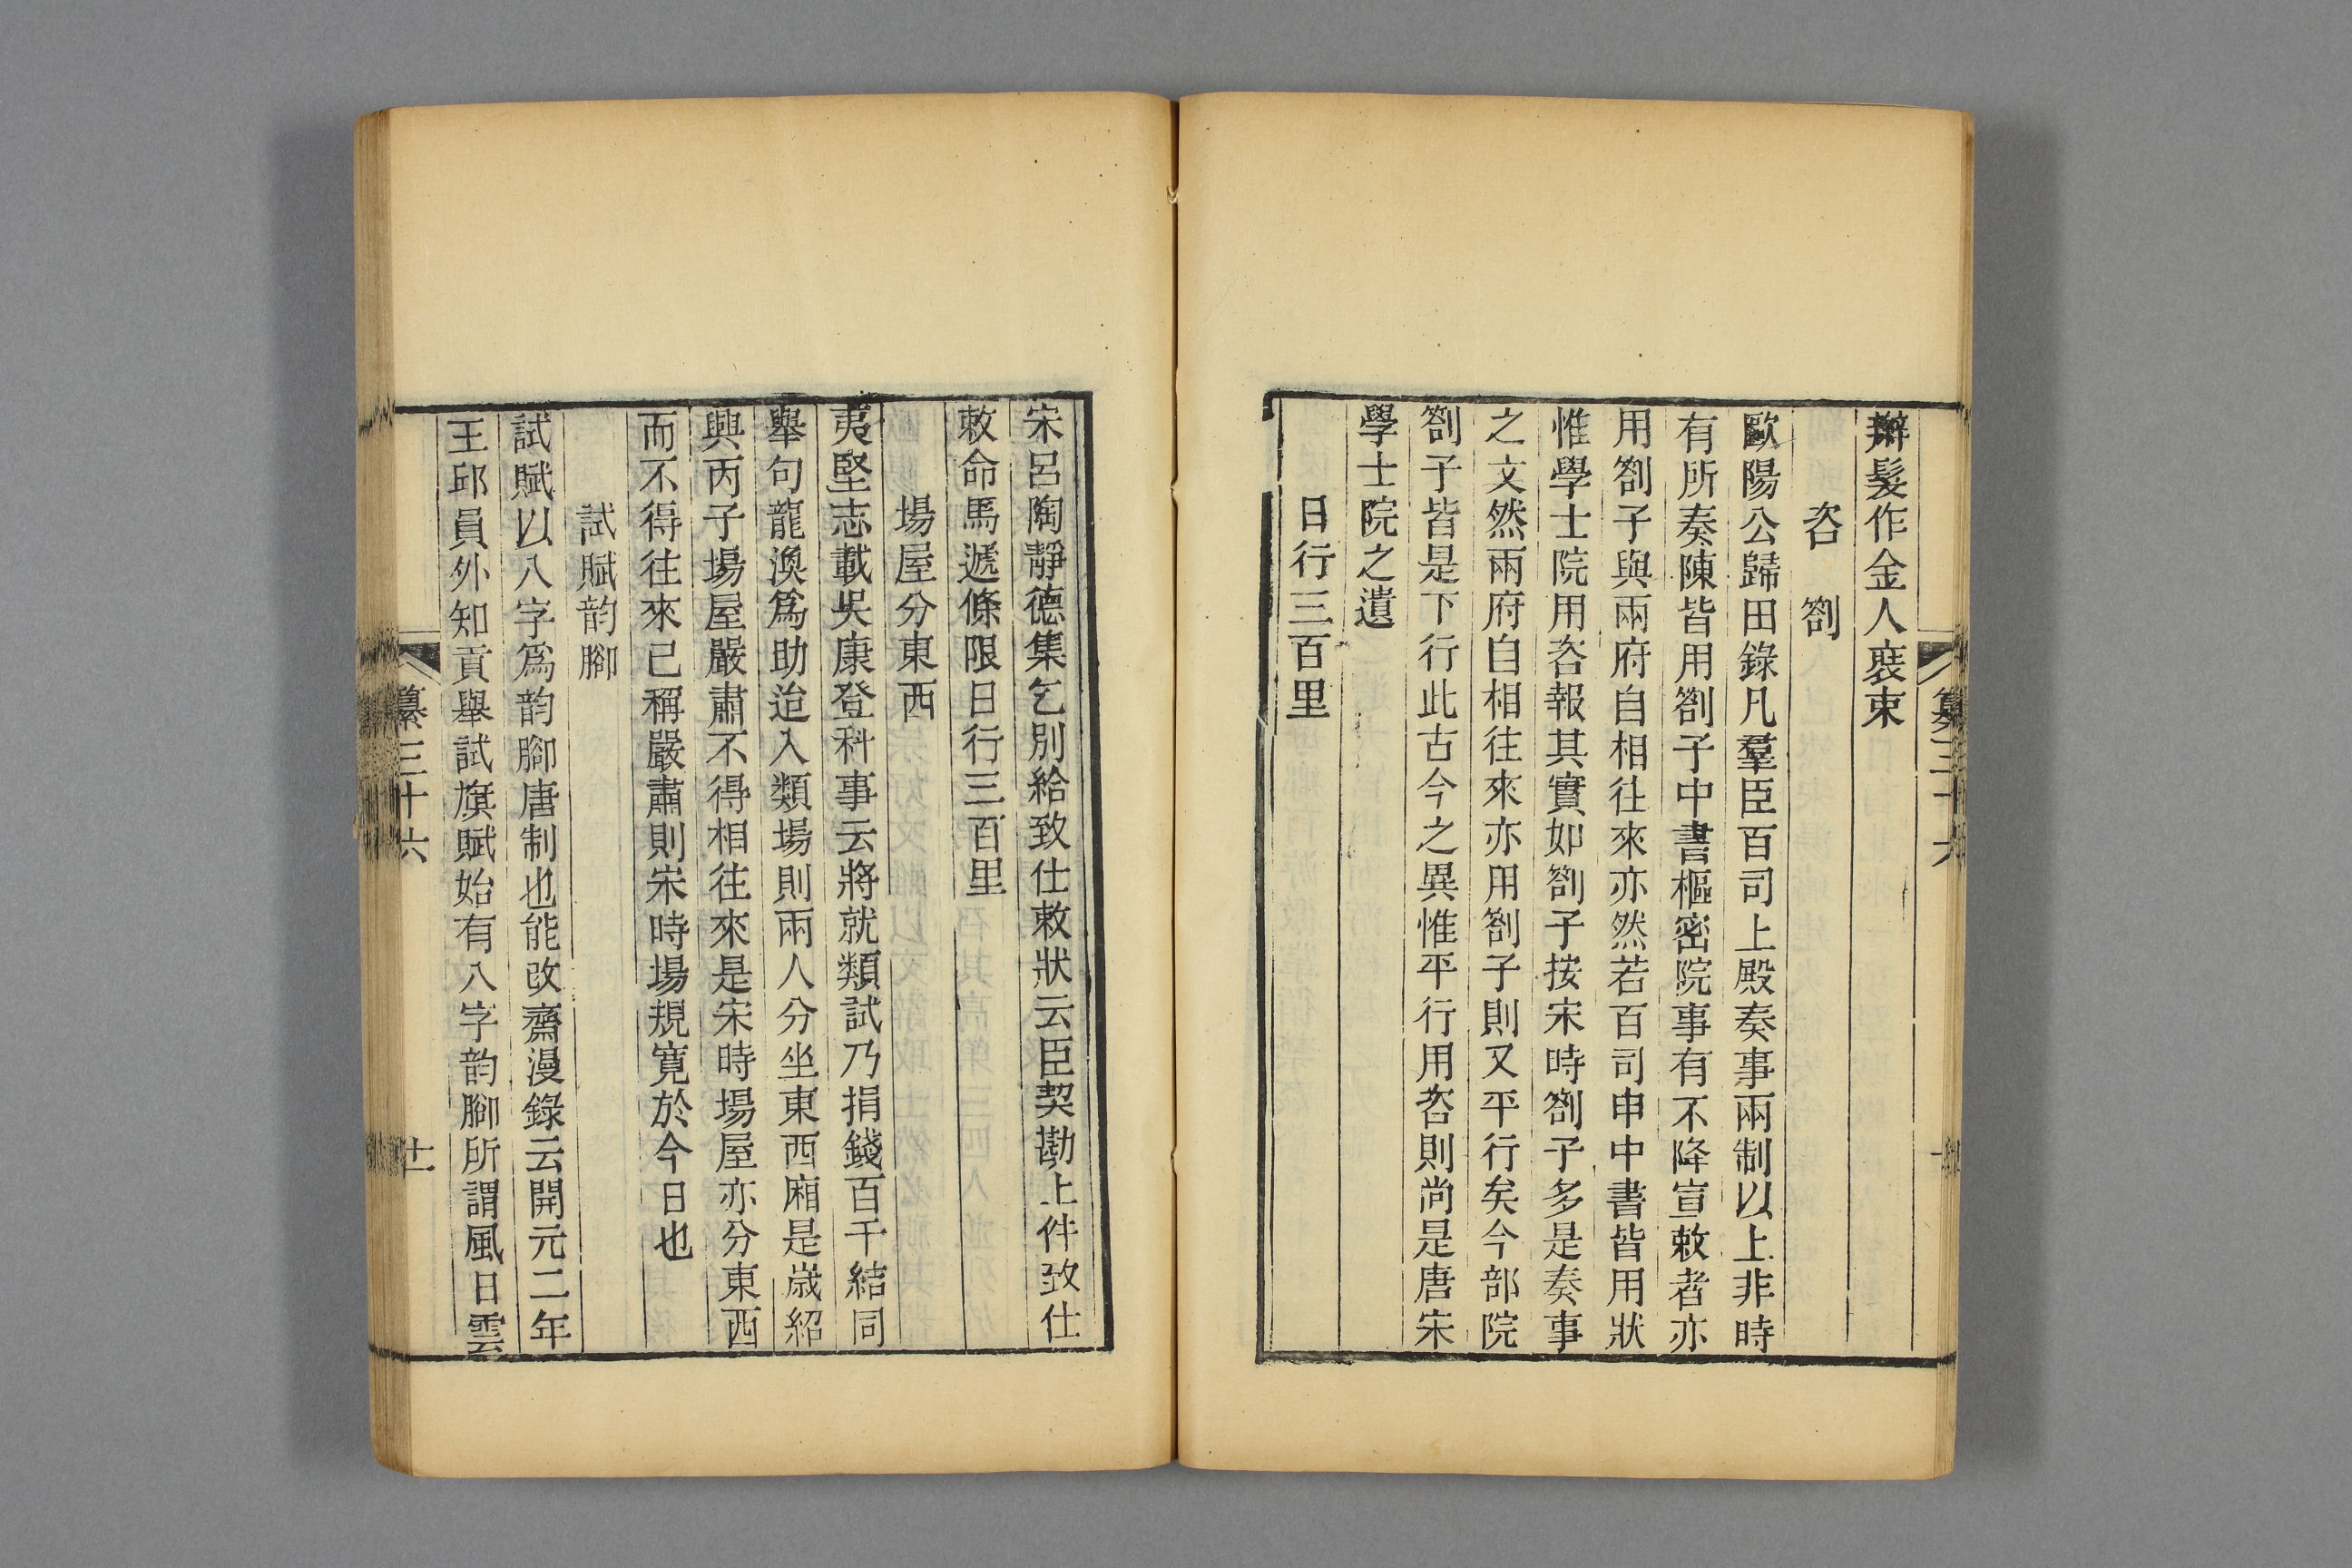 辮髮作金人裝束
咨 劄
歐陽公歸田錄凡羣臣百司上殿奏事兩制以上非時
有所奏陳皆用劄子中書樞密院事有不降宣敕者亦
用劄子與兩府自相往來亦然若百司申中書皆用狀
惟學士院用咨報其實如劄子按宋時劄子多是奏事
之文然兩府自相往來亦用劄子則又平行矣今部院
劄子皆是下行此古今之異惟平行用咨則尚是唐宋
學士院之遺
日行三百里
宋呂陶靜德集乞別給致仕敕狀云臣契勘上件致仕
敕命馬遞條限日行三百里
場屋分東西
夷堅志載吳康登科事云將就類試乃捐錢百千結同
舉句龍渙爲助迨入類場則兩人分坐東西廂是歲紹
興丙子場屋嚴肅不得相往來是宋時場屋亦分東西
而不得往來已稱嚴肅則宋時場規寬於今日也
試賦韵腳
試賦以八字爲韵腳唐制也能改齋漫錄云開元二年
王邱員外知貢舉試旗賦始有八字韵腳所謂風日雲
纂三十六
十一